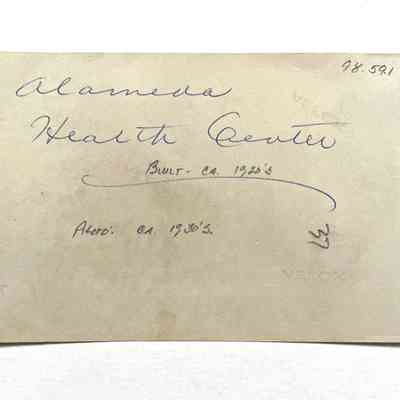 98.59.1
Alameda
Health Center
BUILT - CA. 1920'S
PHOTO: CA. 1930'S.
37
VELOX